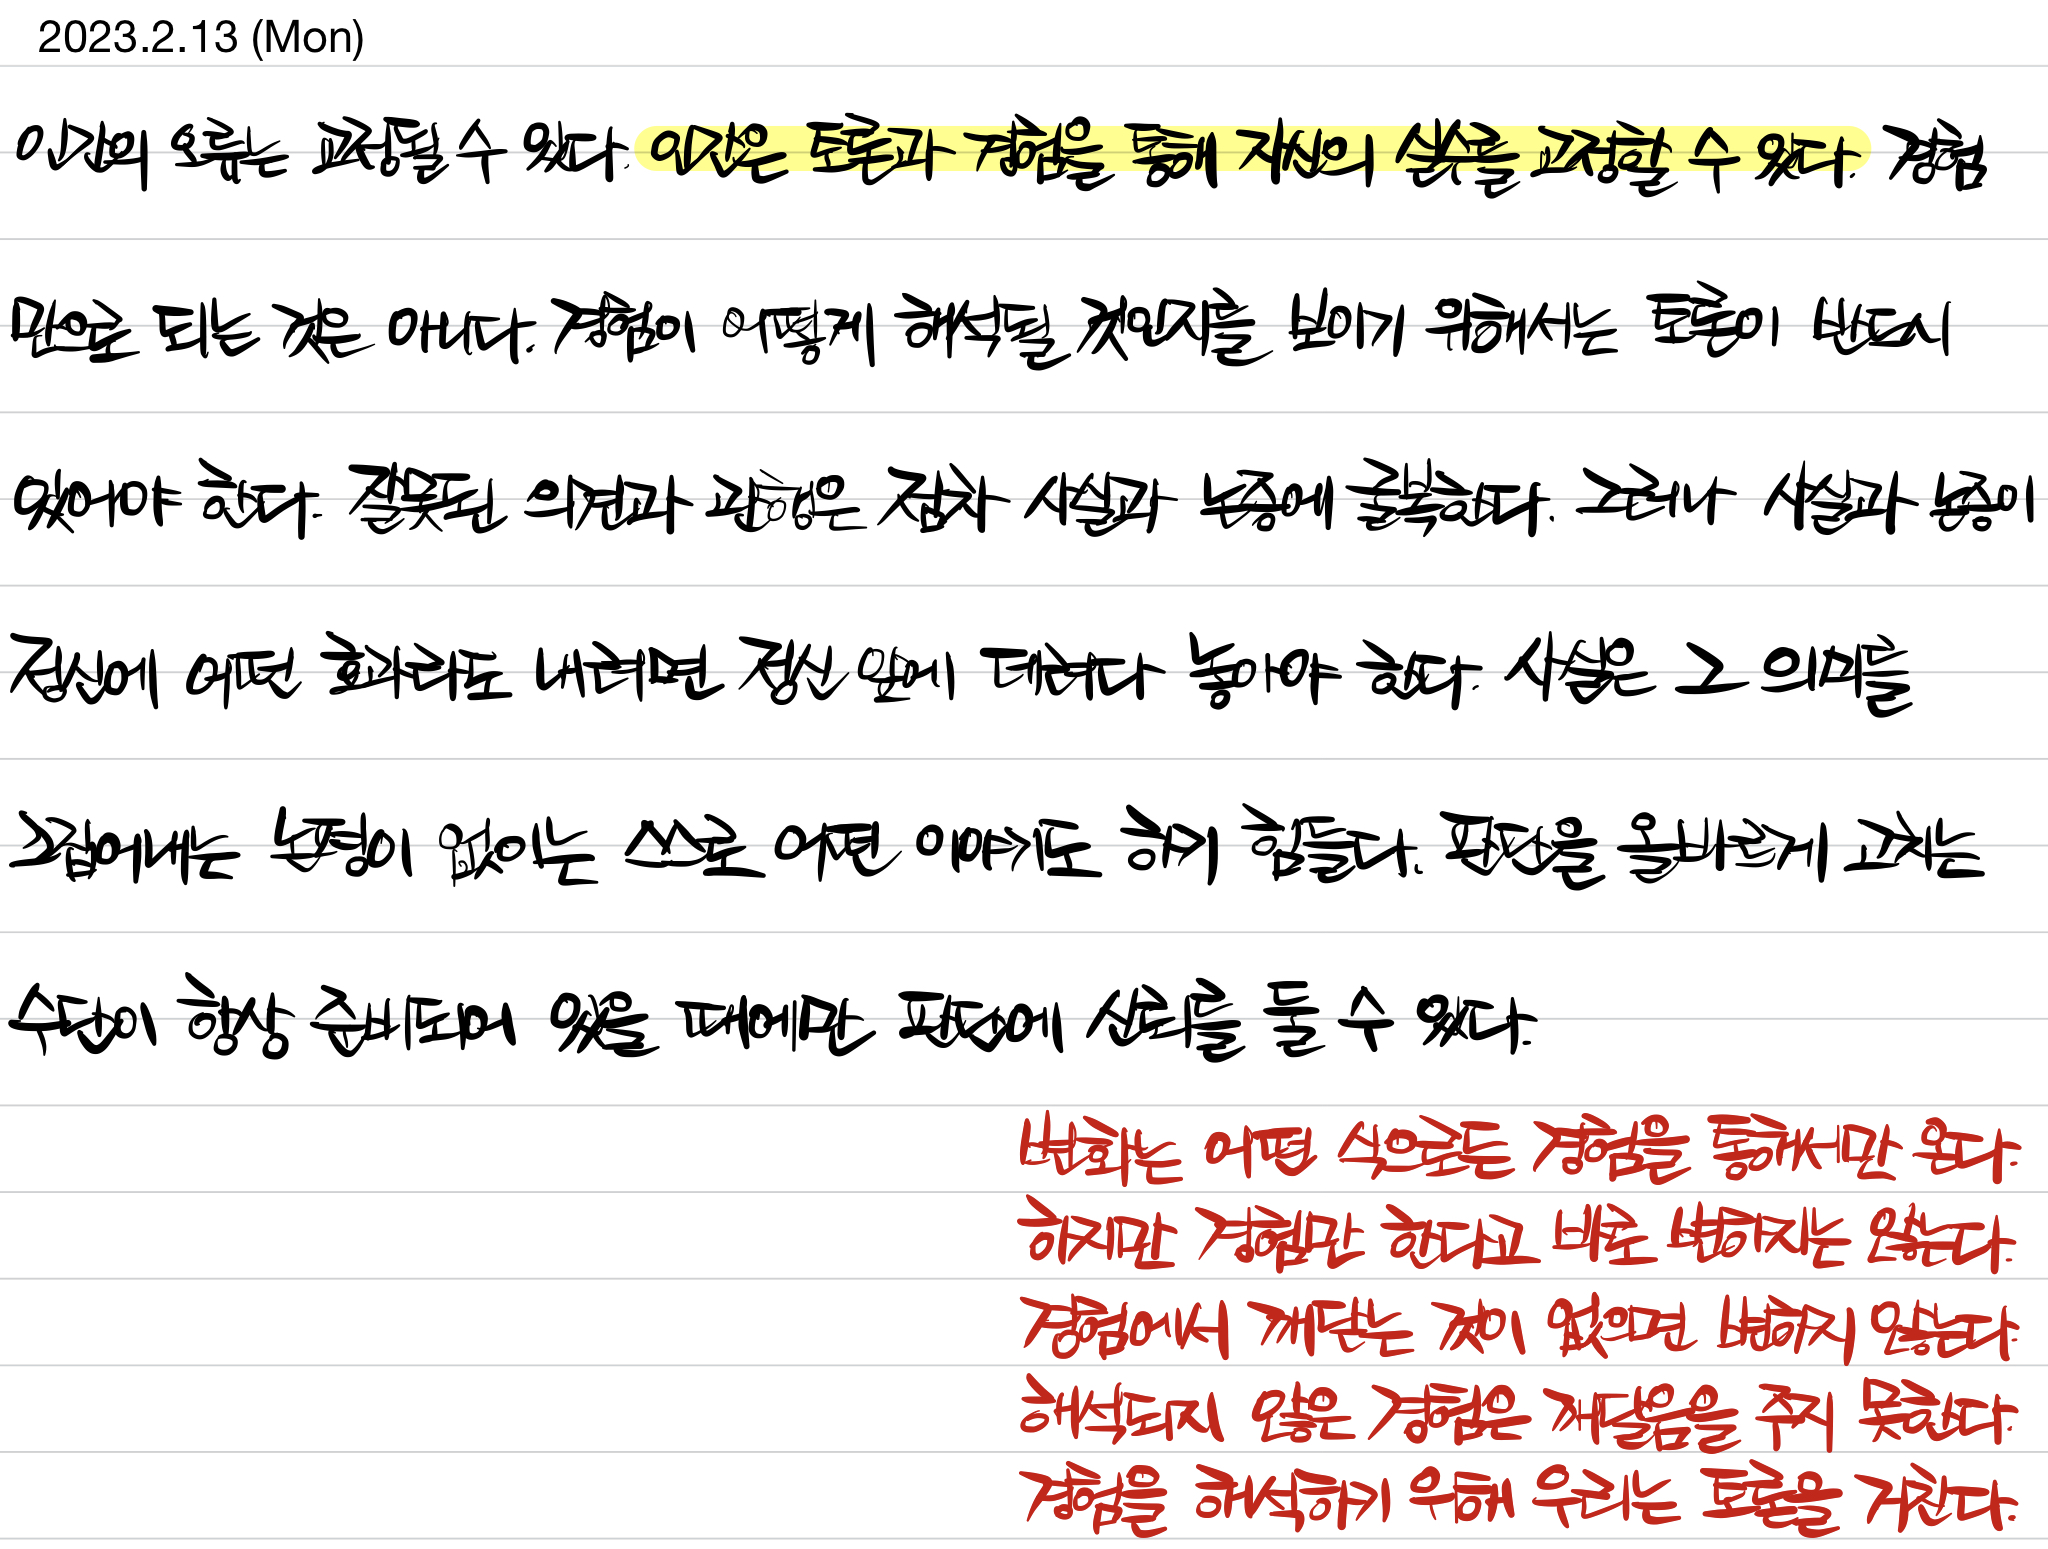 2023.2.13 (Mon)
인간의 오류는 교정될 수 있다. 인간은 토론과 경험을 통해 자신의 실수를 교정할 수 있다. 경험
만으로 되는 것은 아니다. 경험이 어떻게 해석될 것인지를 보이기 위해서는 토론이 반드시
있어야 한다. 잘못된 의견과 관행은 점차 사실과 논증에 굴복한다. 그러나 사실과 논증이
정신에 어떤 효과라도 내려면 정신 앞에 데려다 놓아야 한다. 사실은 그 의미를
그집어내는 논평이 없이는 스스로 어떤 이야기도 하기 힘들다. 판단을 올바르게 고치는
수단이 항상 준비되어 있을 때에만 판단에 신뢰를 둘 수 있다.
변화는 어떤 식으로든 경험을 통해서만 온다.
하지만 경험만 한다고 바로 변하지는 않는다.
경험에서 깨닫는 것이 없으면 변하지 않는다.
해석되지 않은 경험은 깨달음을 주지 못한다.
경험을 해석하기 위해 우리는 토론을 거친다.